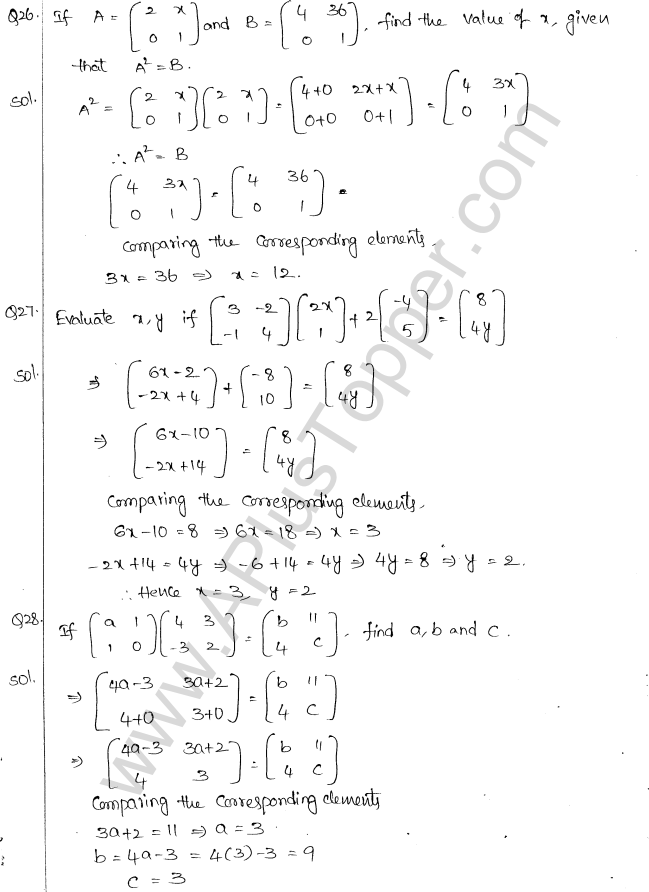 Q26. If A = (2 x 0 1) and B = (4 36 0 1), find the value of x, given
that A² = B.
Sol. A² = (2 x 0 1)(2 x 0 1) = (4+0 2x+x 0+0 0+1) = (4 3x 0 1)
∴ A² = B
(4 3x 0 1) = (4 36 0 1) =
Comparing the corresponding elements.
3x = 36 ⇒ x = 12.
Q27. Evaluate x, y if (3 -2 -1 4)(2x 1) + 2(-4 5) = (8 4y)
Sol. ⇒ (6x-2 -2x+4) + (-8 10) = (8 4y)
⇒ (6x-10 -2x+14) = (8 4y)
Comparing the corresponding elements.
6x-10 = 8 ⇒ 6x = 18 ⇒ x = 3
-2x+14 = 4y ⇒ -6+14 = 4y ⇒ 4y = 8 ⇒ y = 2.
∴ Hence x = 3, y = 2
Q28. If (a 1 1 0)(4 3 -3 2) = (b 11 4 c). find a, b and c.
Sol. ⇒ [4a-3 3a+2 4+0 3+0] = [b 11 4 c]
⇒ [4a-3 3a+2 4 3] = [b 11 4 c]
Comparing the corresponding elements
3a+2 = 11 ⇒ a = 3
b = 4a-3 = 4(3)-3 = 9
c = 3
www.APlusTopper.com